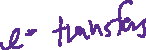 e- transfers